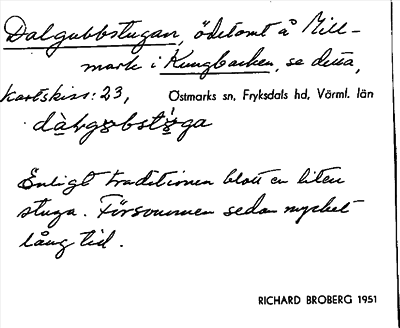 Dalgubbstugan, ödetomt å Mill-
mark i Kungbacken, se dessa,
kartskiss: 23, Östmarks sn, Fryksdals hd, Värml. län
Enligt traditionen blott en liten
stuga. Försvunnen sedan mycket
lång tid.
RICHARD BROBERG 1951